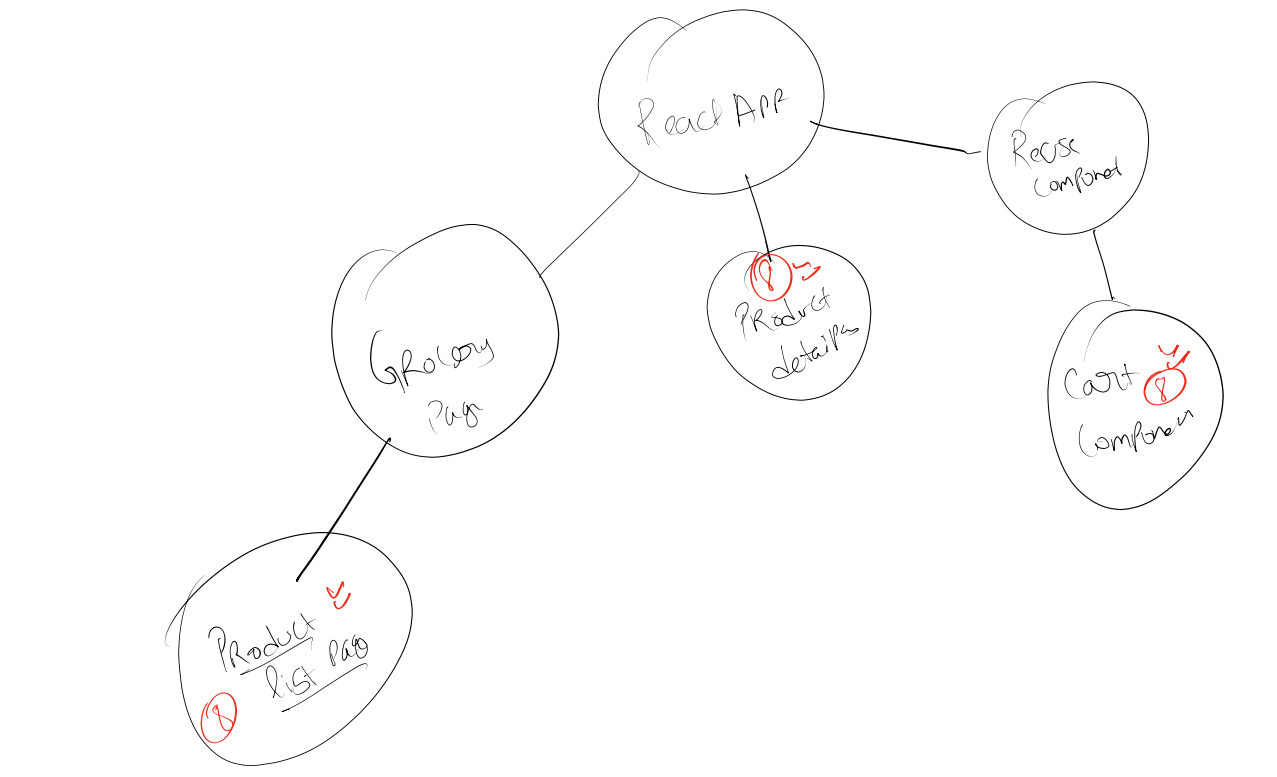 React APP
Reuse
Component
Grocery
Page
8
Product
detail
Cart
8
Component
Product
list page
8